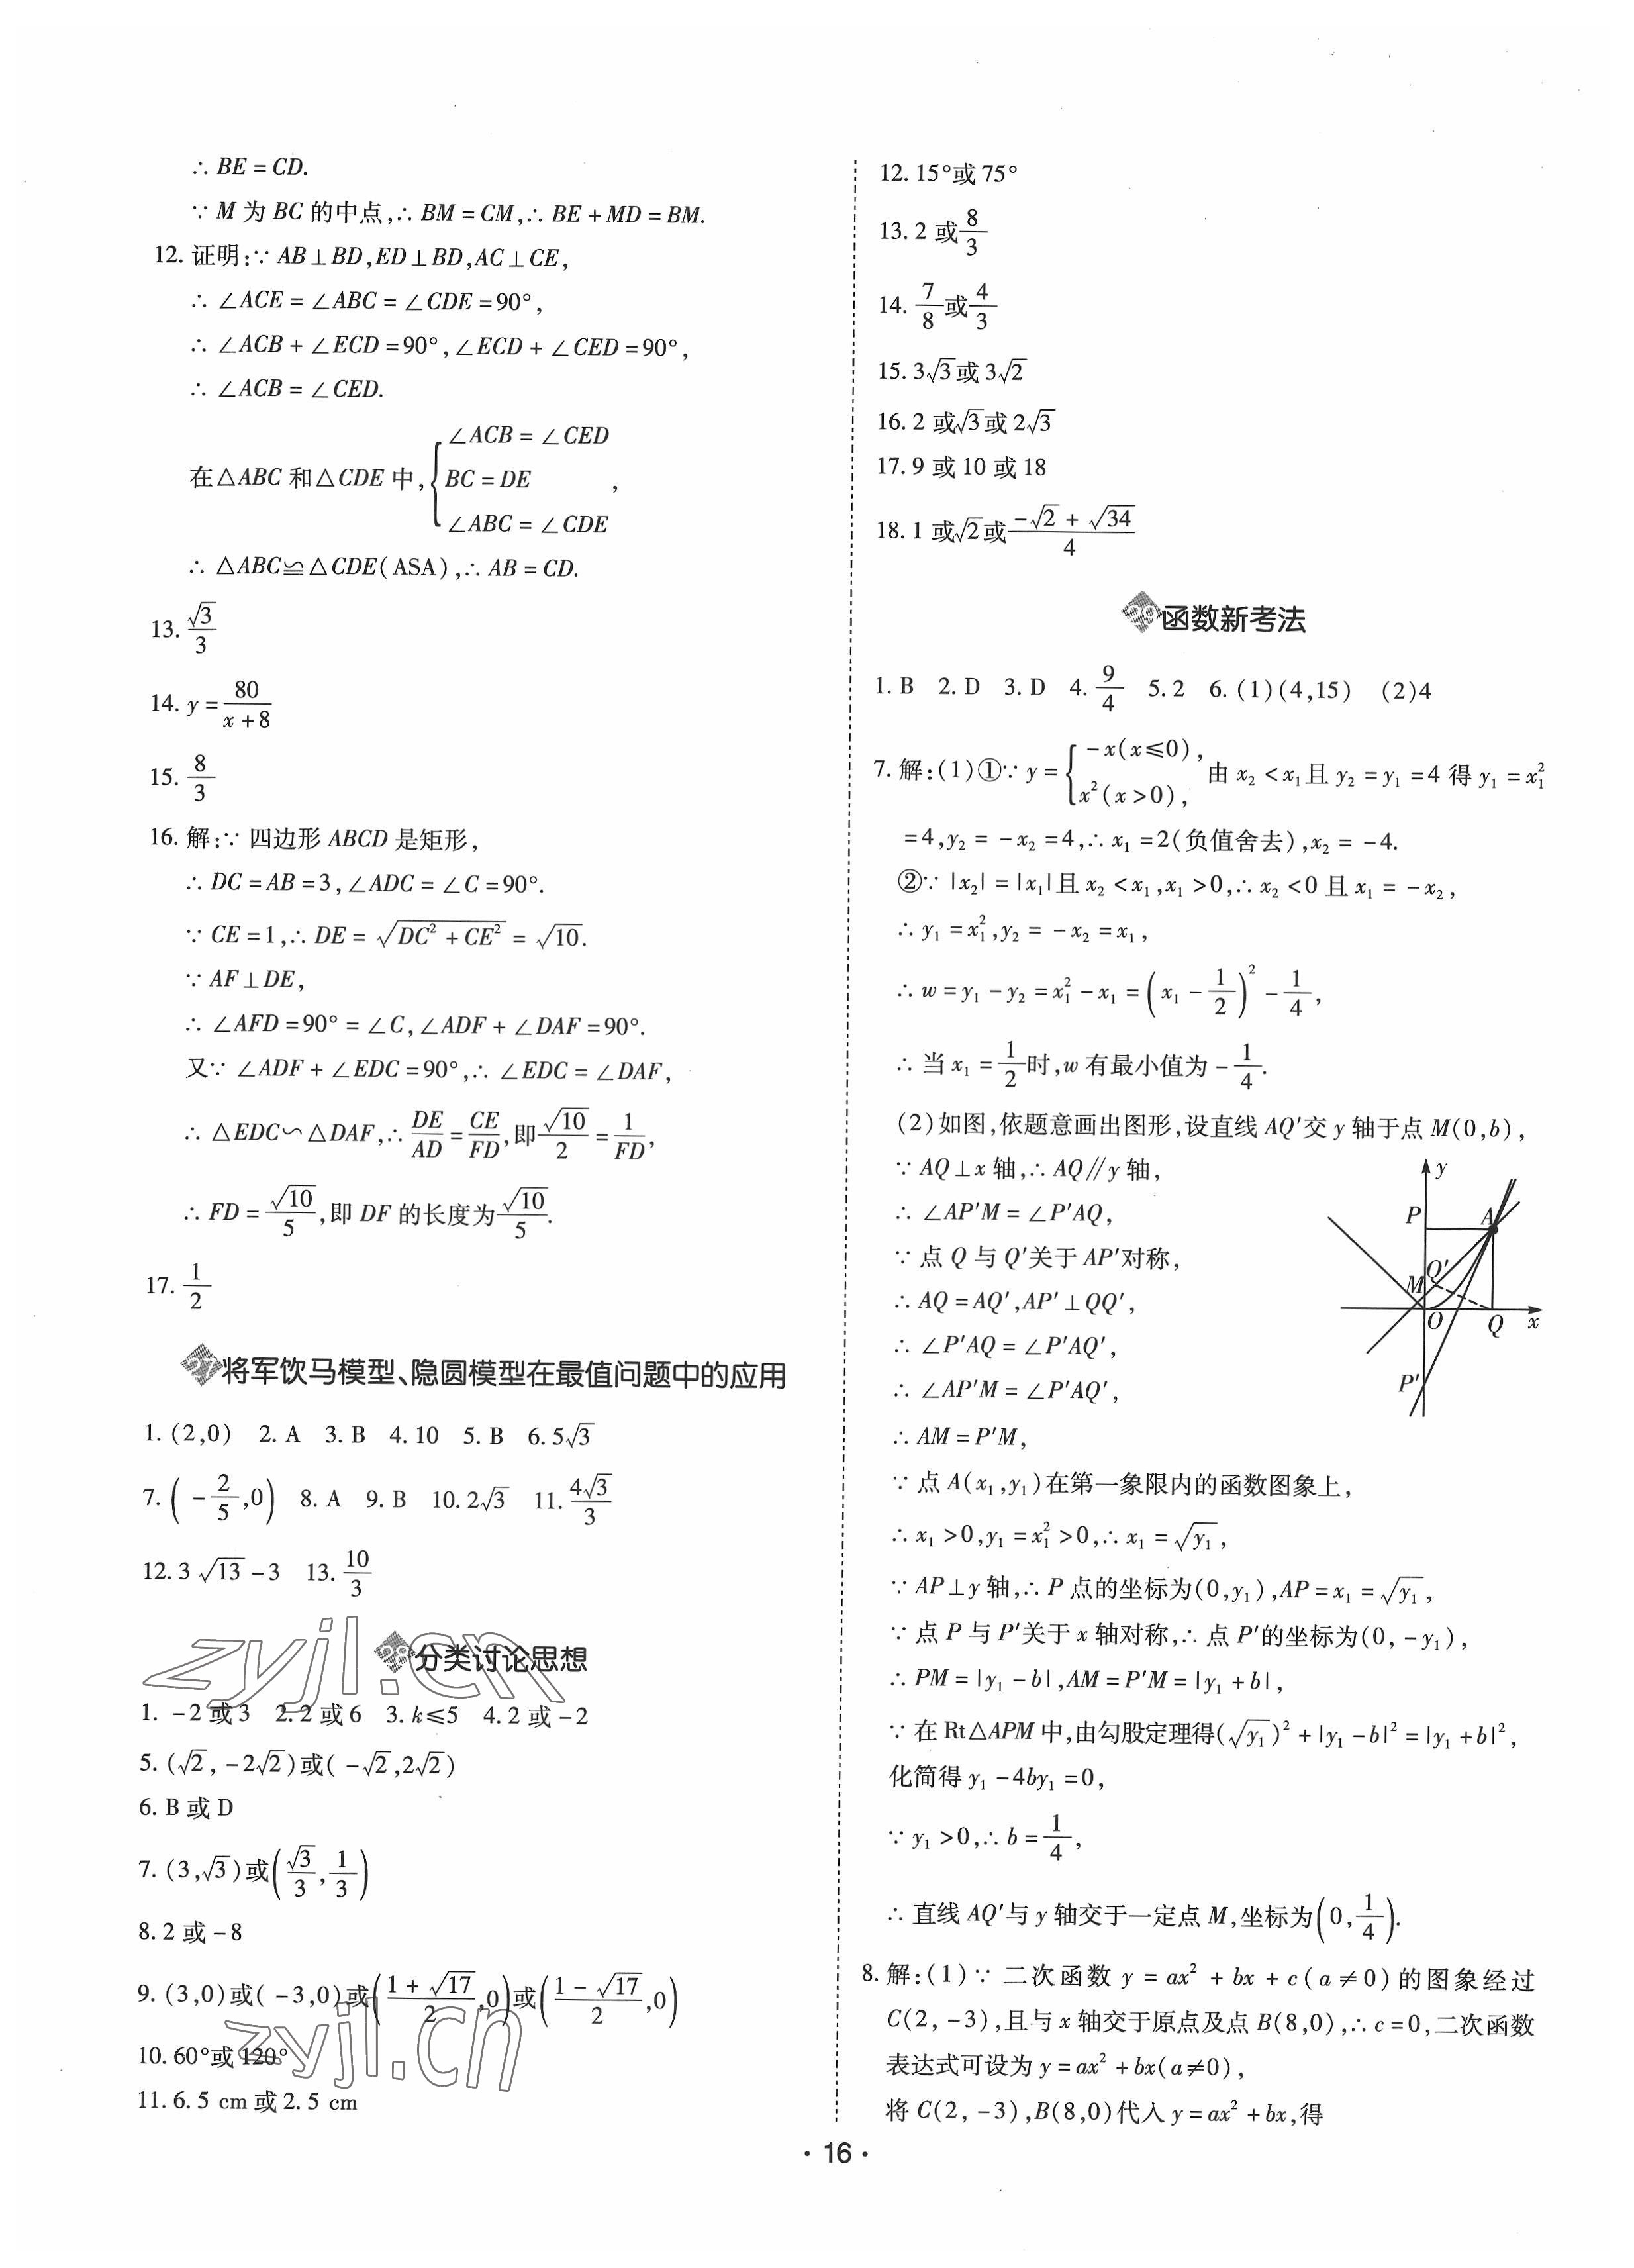 ∴ BE = CD.
∵ M 为 BC 的中点,∴ BM = CM,∴ BE + MD = BM.
12. 证明:∵ AB⊥BD,ED⊥BD,AC⊥CE,
∴ ∠ACE = ∠ABC = ∠CDE = 90°,
∴ ∠ACB + ∠ECD = 90°,∠ECD + ∠CED = 90°,
∴ ∠ACB = ∠CED.
在△ABC 和△CDE 中,{∠ACB = ∠CED
BC = DE ,
∠ABC = ∠CDE
∴ △ABC≌△CDE(ASA),∴ AB = CD.
13. √3/3
14. y = 80/(x+8)
15. 8/3
16. 解:∵ 四边形 ABCD 是矩形,
∴ DC = AB = 3,∠ADC = ∠C = 90°.
∵ CE = 1,∴ DE = √(DC²+CE²) = √10.
∵ AF⊥DE,
∴ ∠AFD = 90° = ∠C,∠ADF + ∠DAF = 90°.
又∵ ∠ADF + ∠EDC = 90°,∴ ∠EDC = ∠DAF,
∴ △EDC∽△DAF,∴ DE/AD = CE/FD,即 √10/2 = 1/FD,
∴ FD = √10/5,即 DF 的长度为 √10/5.
17. 1/2
27 将军饮马模型、隐圆模型在最值问题中的应用
1. (2,0) 2. A 3. B 4. 10 5. B 6. 5√3
7. (-2/5,0) 8. A 9. B 10. 2√3 11. 4√3/3
12. 3√13 - 3 13. 10/3
28 分类讨论思想
1. -2 或 3 2. 2 或 6 3. k≤5 4. 2 或 -2
5. (√2, -2√2)或(-√2,2√2)
6. B 或 D
7. (3,√3)或(√3/3,1/3)
8. 2 或 -8
9. (3,0)或(-3,0)或((1+√17)/2,0)或((1-√17)/2,0)
10. 60°或 120°
11. 6.5 cm 或 2.5 cm
12. 15°或 75°
13. 2 或 8/3
14. 7/8 或 4/3
15. 3√3或 3√2
16. 2 或√3或 2√3
17. 9 或 10 或 18
18. 1 或√2或 (-√2+√34)/4
29 函数新考法
1. B 2. D 3. D 4. 9/4 5. 2 6. (1)(4,15) (2)4
7. 解:(1)①∵ y = {-x(x≤0), x²(x>0), 由 x₂ < x₁且 y₂ = y₁ = 4 得 y₁ = x₁²
=4,y₂ = -x₂ = 4,∴ x₁ = 2(负值舍去),x₂ = -4.
②∵ |x₂| = |x₁|且 x₂ < x₁,x₁ > 0,∴ x₂ < 0 且 x₁ = -x₂,
∴ y₁ = x₁²,y₂ = -x₂ = x₁,
∴ w = y₁ - y₂ = x₁² - x₁ = (x₁ - 1/2)² - 1/4,
∴ 当 x₁ = 1/2 时,w 有最小值为 -1/4.
(2)如图,依题意画出图形,设直线 AQ′交 y 轴于点 M(0,b),
∵ AQ⊥x 轴,∴ AQ∥y 轴,
∴ ∠AP′M = ∠P′AQ,
∵ 点 Q 与 Q′关于 AP′对称,
∴ AQ = AQ′,AP′⊥QQ′,
∴ ∠P′AQ = ∠P′AQ′,
∴ ∠AP′M = ∠P′AQ′,
∴ AM = P′M,
y
P A
M Q′
O Q x
P′
∵ 点 A(x₁,y₁)在第一象限内的函数图象上,
∴ x₁ > 0,y₁ = x₁² > 0,∴ x₁ = √y₁,
∵ AP⊥y 轴,∴ P 点的坐标为(0,y₁),AP = x₁ = √y₁,
∵ 点 P 与 P′关于 x 轴对称,∴ 点 P′的坐标为(0, -y₁),
∴ PM = |y₁ - b|,AM = P′M = |y₁ + b|,
∵ 在 Rt△APM 中,由勾股定理得(√y₁)² + |y₁ - b|² = |y₁ + b|²,
化简得 y₁ - 4by₁ = 0,
∵ y₁ > 0,∴ b = 1/4,
∴ 直线 AQ′与 y 轴交于一定点 M,坐标为(0,1/4).
8. 解:(1)∵ 二次函数 y = ax² + bx + c(a≠0)的图象经过
C(2, -3),且与 x 轴交于原点及点 B(8,0),∴ c = 0,二次函数
表达式可设为 y = ax² + bx(a≠0),
将 C(2, -3),B(8,0)代入 y = ax² + bx,得
· 16 ·
zyjl.cn
zyjl.cn